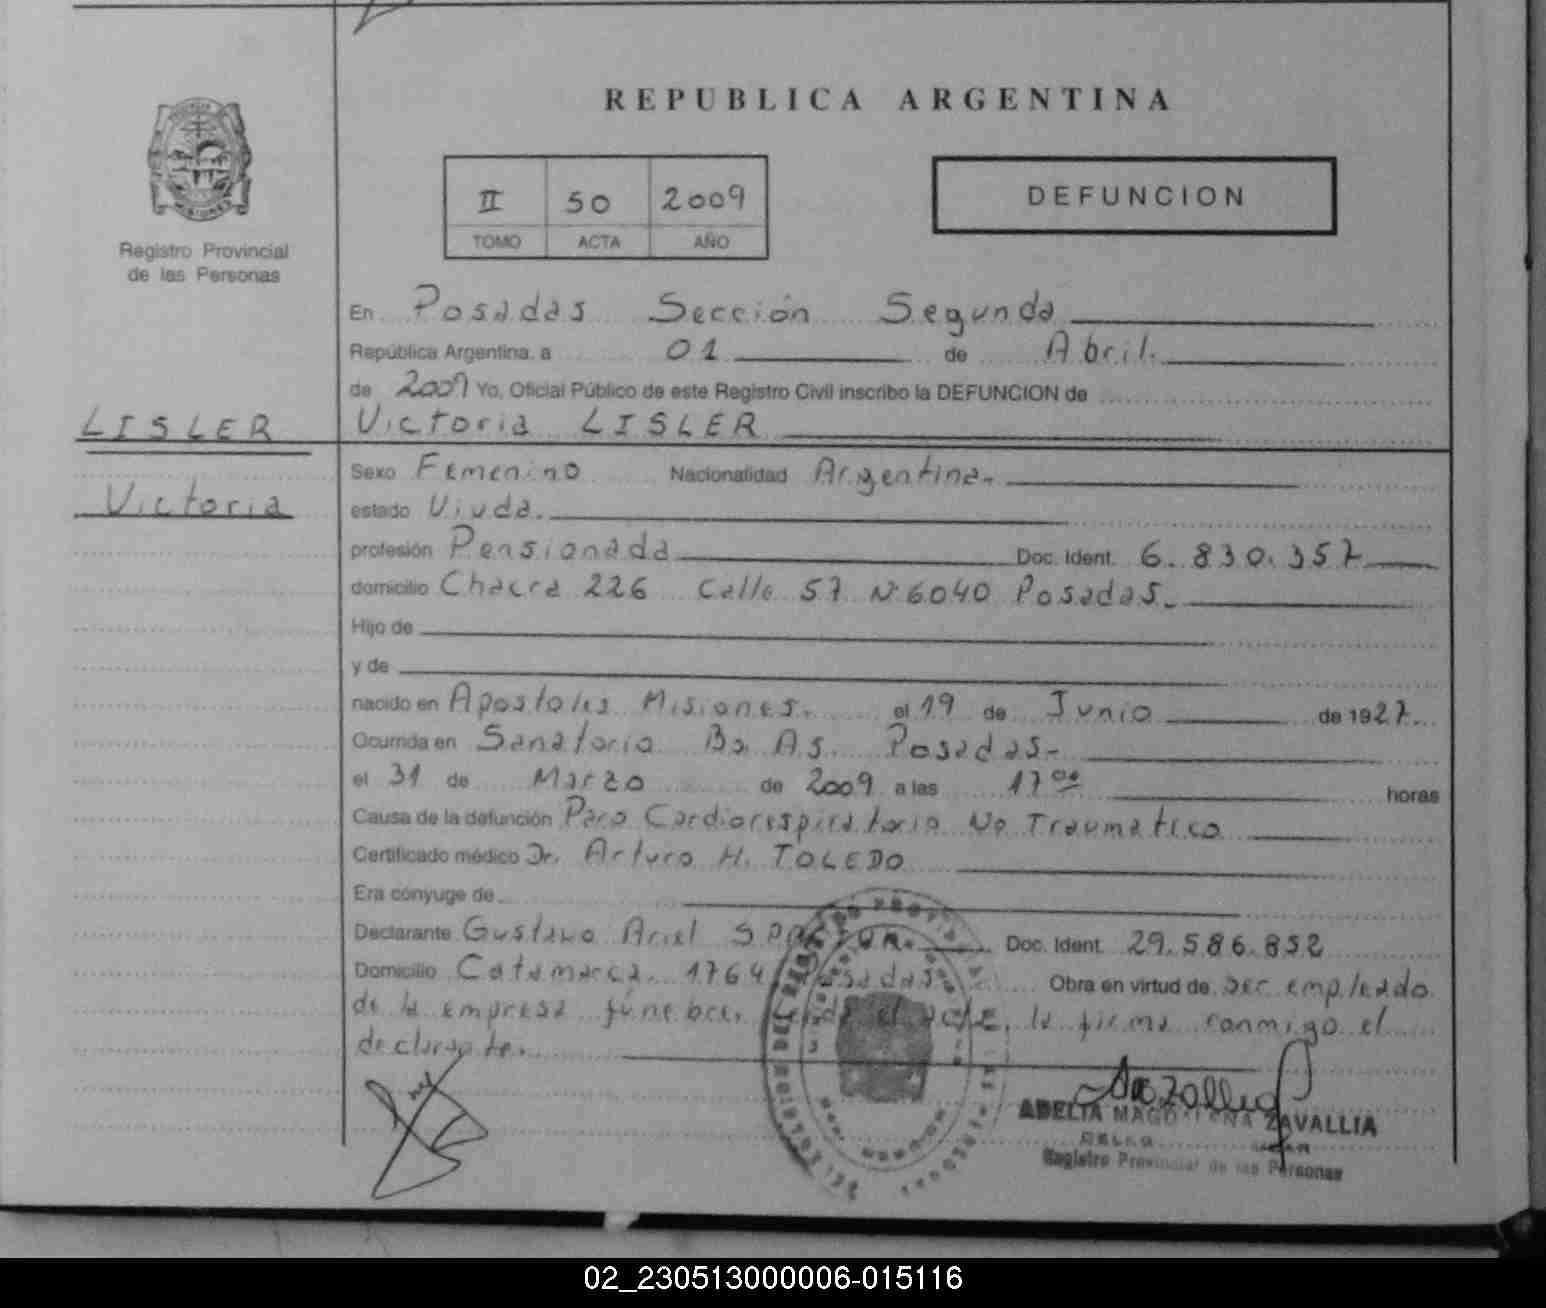 REPUBLICA ARGENTINA
II 50 2009
TOMO ACTA AÑO
DEFUNCION
Registro Provincial
de las Personas
En Posadas Sección Segunda
República Argentina, a 01 de Abril.
de 2009 Yo, Oficial Público de este Registro Civil inscribo la DEFUNCION de
LISLER
Victoria LISLER
Victoria
Sexo Femenino Nacionalidad Argentina.
estado Viuda.
profesión Pensionada Doc. Ident. 6.830.357
domicilio Chacra 226 Calle 57 Nº 6040 Posadas.
Hijo de
y de
nacido en Apostoles Misiones. el 19 de Junio de 1927.
Ocurrida en Sanatorio Bs. As. Posadas.
el 31 de Marzo de 2009 a las 17 horas
Causa de la defunción Paro Cardiorespiratorio No Traumatico
Certificado médico Dr. Arturo H. TOLEDO
Era cónyuge de
Declarante Gustavo Ariel Doc. Ident. 29.586.852
Domicilio Catamarca 1764 Posadas Obra en virtud de ser empleado
de la empresa fúnebre, el acta, la firma conmigo el
declarante.
ADELIA MAGDALENA ZAVALLIA
Registro Provincial de las Personas
02_230513000006-015116